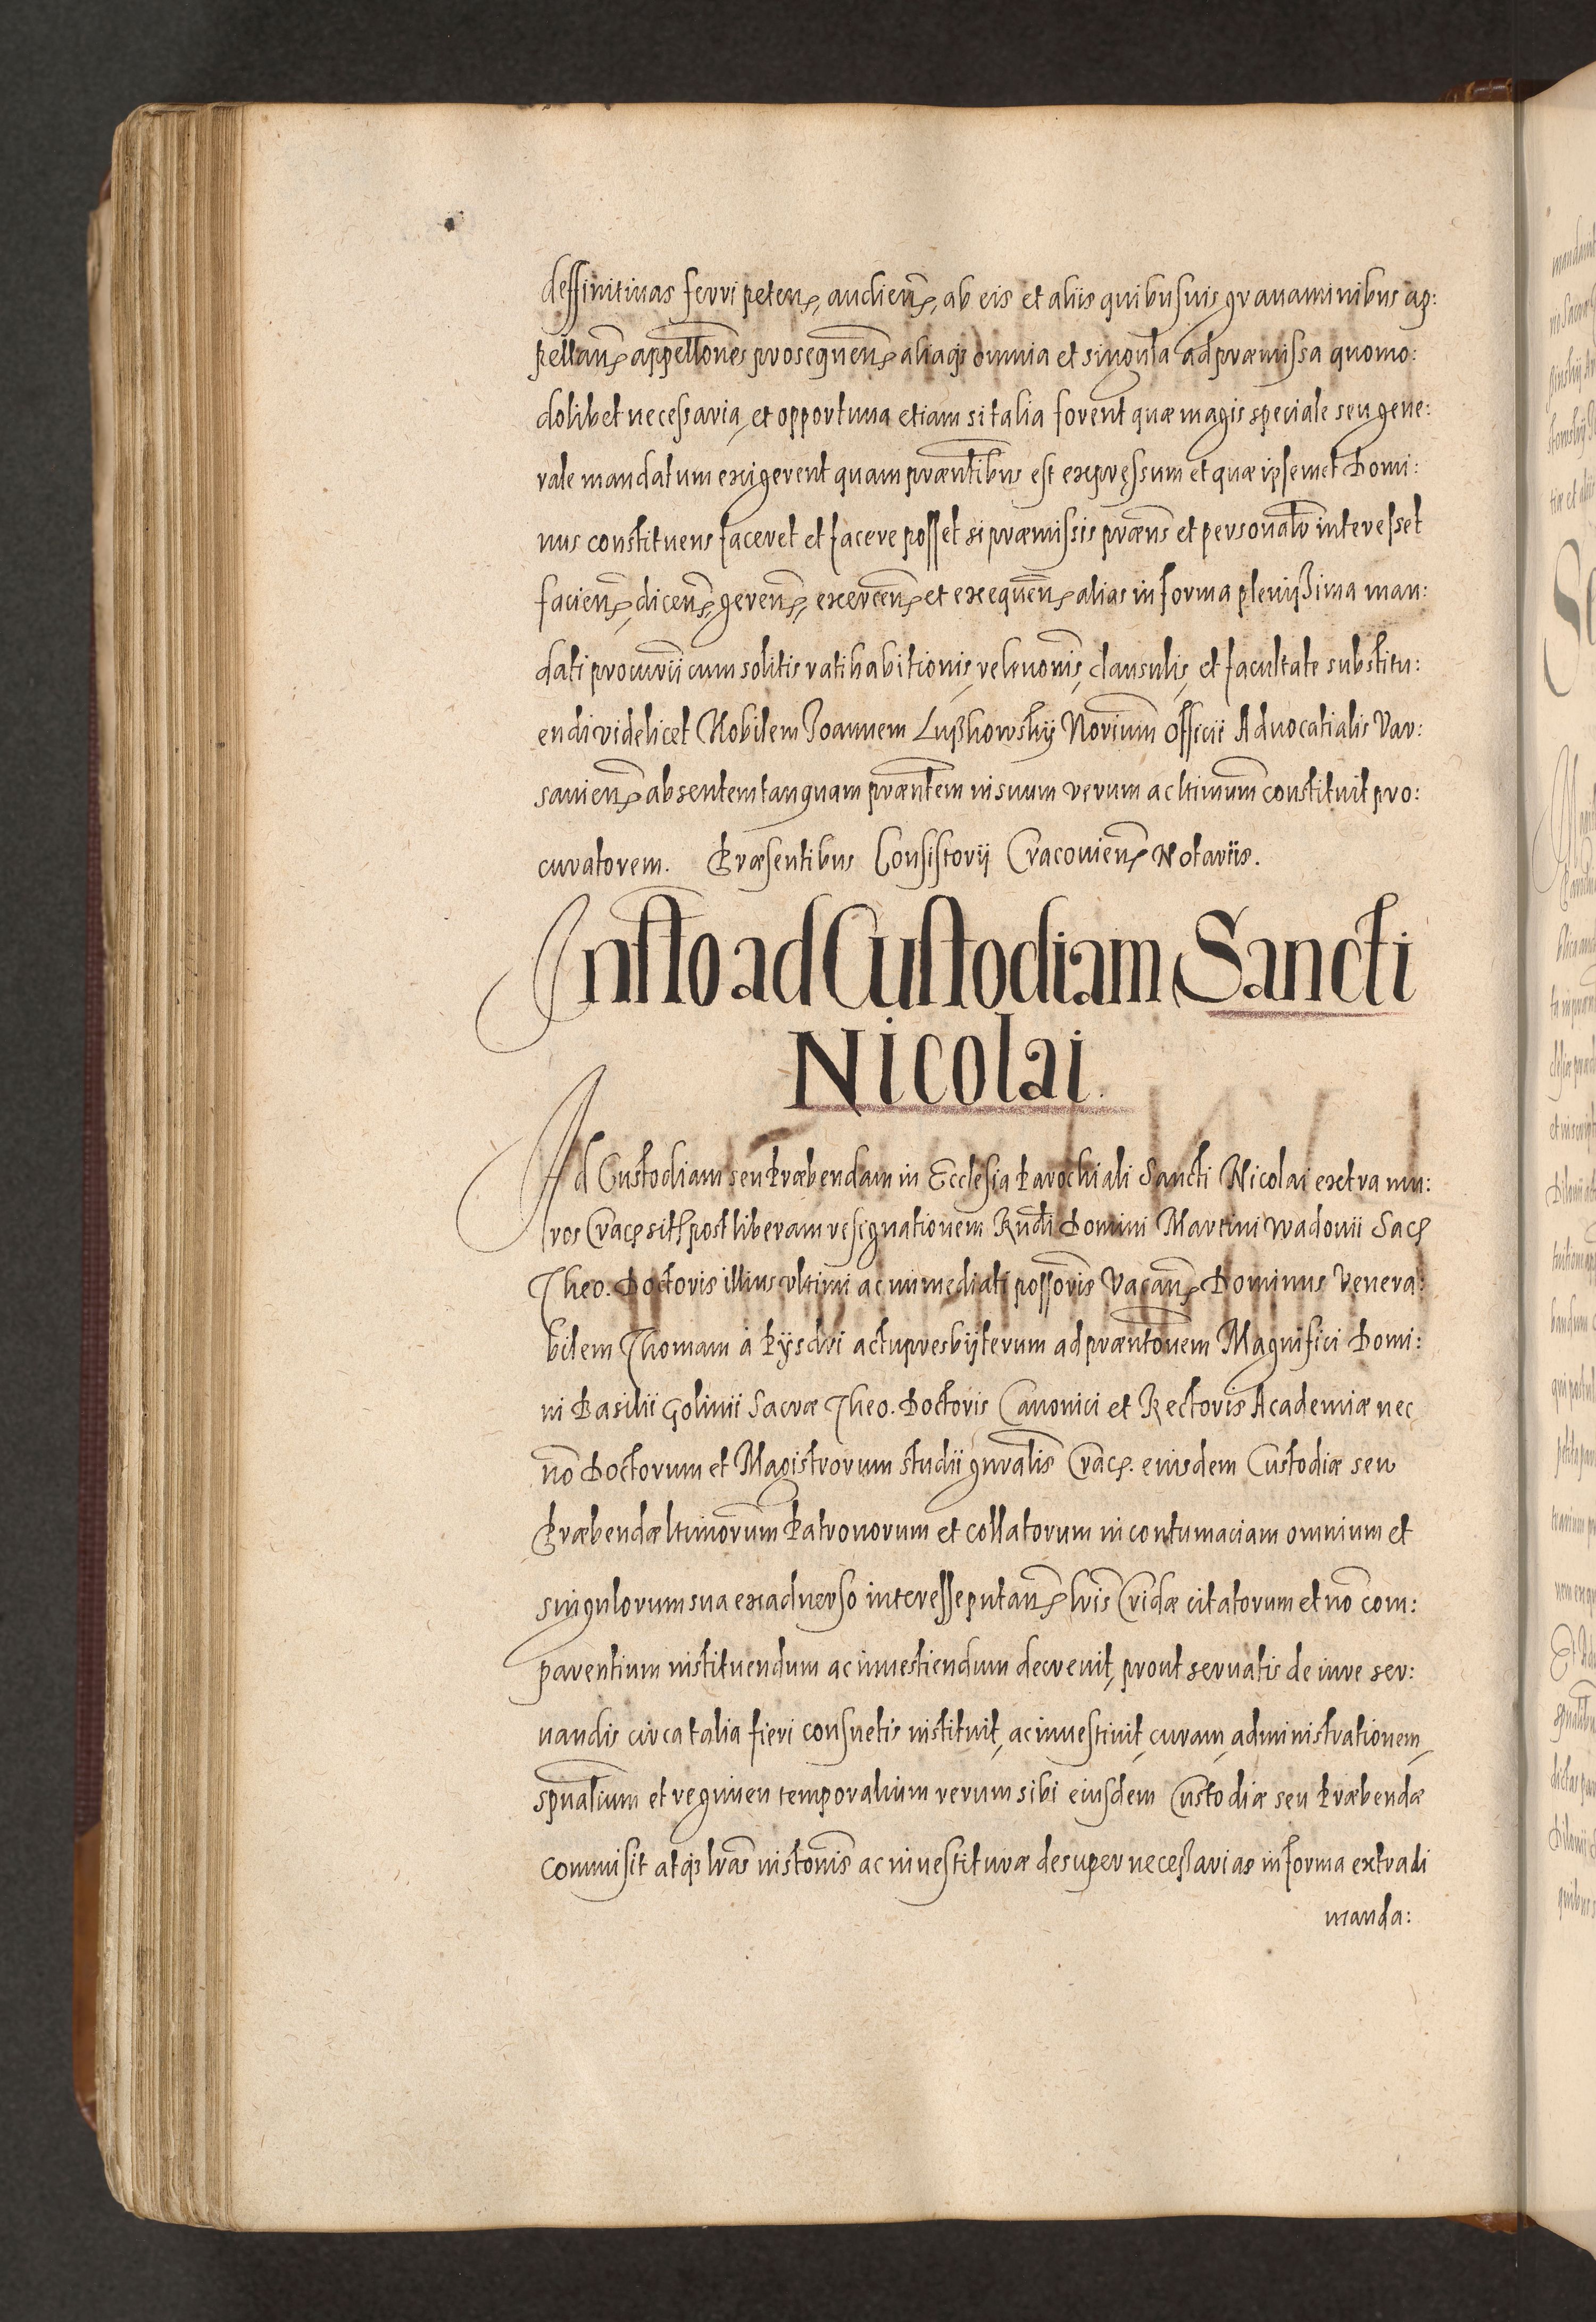 deffinitiuas ferri peten, audien, ab eis et aliis quibusuis grauaminibus ap:
pellan appellones prosequen aliaqs omnia et singula ad præmissa quomo:
dolibet necessaria, et opportuna etiam si talia forent quæ magis speciale seu gene:
rale mandatum exigerent quam præntibus est expręssum et quæ ipsemet Domi:
nus constituens faceret et facere posset si præmissis præns et personalr interesset
facien, dicen, geren, exercen et exequen alias in forma plenißima man:
dati procurii cum solitis ratihabitionis, releuonis, clausulis, et facultate substitu:
endi videlicet Nobilem Joannem Lußkowskÿ Norium officii Aduocatialis Var:
sauien absentem tanquam præntem in suum verum ac ltimum constituit pro:
curatorem. Præsentibus Consistorij Cracouien Notariis.
Instto ad Custodiam Sancti
Nicolai.
Ad Custodiam seu Præbendam in Ecclesia Parochiali Sancti Nicolai extra mu:
ros Crac sit post liberam resignationem Rndi Domini Martini Wadouii Sac
Theo. Doctoris illius vltimi ac immediati possoris Vacan Dominus Venera:
bilem Thomam à Pÿsdri actu presbÿterum ad præntonem Magnifici Domi:
ni Basilii Golinii Sacræ Theo. Doctoris Canonici et Rectoris Academiæ nec
nō Doctorum et Magistrorum studii gnralis Crac. eiusdem Custodiæ seu
Præbendæ ltimorum Patronorum et collatorum in contumaciam omnium et
singulorum sua ex aduerso interesse putan lris Cridæ citatorum et nō com:
parentium instituendum ac inuestiendum decreuit, prout seruatis de iure ser:
uandis circa talia fieri consuetis instituit, ac inuestiuit, curam, administrationem,
spualium et regimen temporalium rerum sibi eiusdem Custodiæ seu Præbendæ
commisit atqs lras instonis ac inuestituræ desuper necessarias in forma extradi
manda: